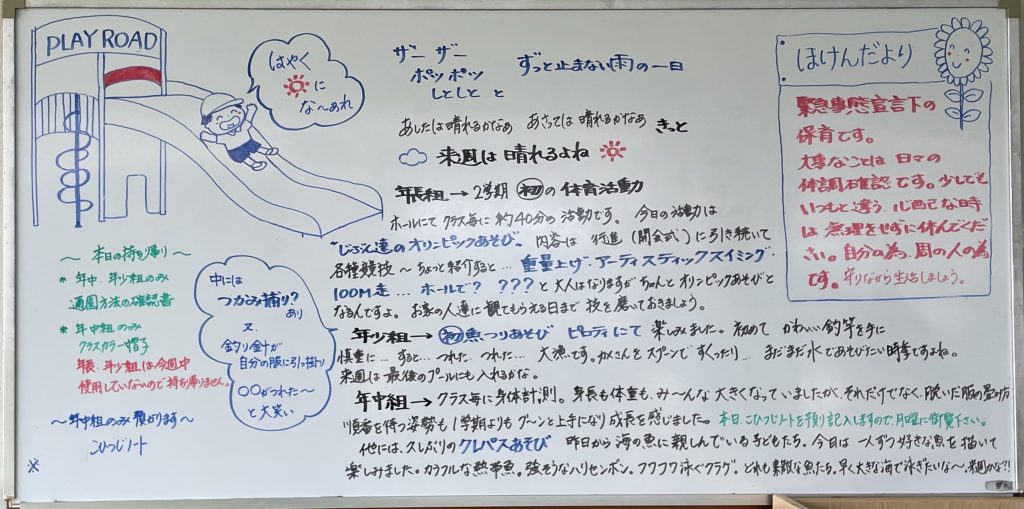 PLAY ROAD
はやく
に
な〜あれ
ザー ザー
ポッ ポッ
しとしと と
ずっと止まない雨の一日
あしたは晴れるかなぁ あさっては晴れるかなぁ きっと
来週は晴れるよね
年長組→2学期 初の体育活動
ホールにて クラス毎に約40分の活動です。 今日の活動は
"じぶん達のオリンピックあそび。 内容は 行進(開会式)に引き続いて
各種競技〜ちょっと紹介すると… 重量上げ・アーティスティックスイミング・
100M走 … ホールで? ???と大人はなりますが ちゃんとオリンピックあそびと
なるんですよ。 お家の人達に観てもらえる日まで 技を磨いておきましょう。
年少組→初魚つりあそび ピロティにて 楽しみました。初めて かわいい釣竿を手に
慎重に…すると…つれた、つれた… 大漁です。カメさんをスプーンですくったり… まだまだ水であそびたい時季ですよね。
来週は最後のプールにも入れるかな。
年中組→クラス毎に身体計測。身長も体重も、み〜んな 大きくなっていましたが、それだけでなく、脱いだ服の畳み方
順番を待つ姿勢も1学期よりもグーンと上手になり成長を感じました。 本日、こひつじノートを預り記入しますので、月曜に御覧下さい。
他には、久しぶりのクレパスあそび 昨日から海の魚に親しんでいる子どもたち。今日は一人ずつ好きな魚を描いて
楽しみました。カラフルな熱帯魚。強そうなハリセンボン。フワフワ泳ぐクラゲ。どれも素敵な魚たち。早く大きな海で泳ぎたいな〜。来週かな?!
〜 本日の持ち帰り 〜
* 年中、年少組のみ
通園方法の確認書
* 年中組のみ
クラスカラー帽子
年長、年少組は今週中
使用していないので持ち帰りません。
〜年中組のみ預かります〜
こひつじノート
※
中には
つかみ捕り?
あり
又、
釣り針が
自分の服に引っ掛り
○○がつれた〜
と大笑い
ほけんだより
緊急事態宣言下の
保育です。
大事なことは 日々の
体調確認です。少しでも
いつもと違う、心配な時
は無理をせずに休んでくだ
さい。自分の為、周の人の為
です。守りながら生活しましょう。